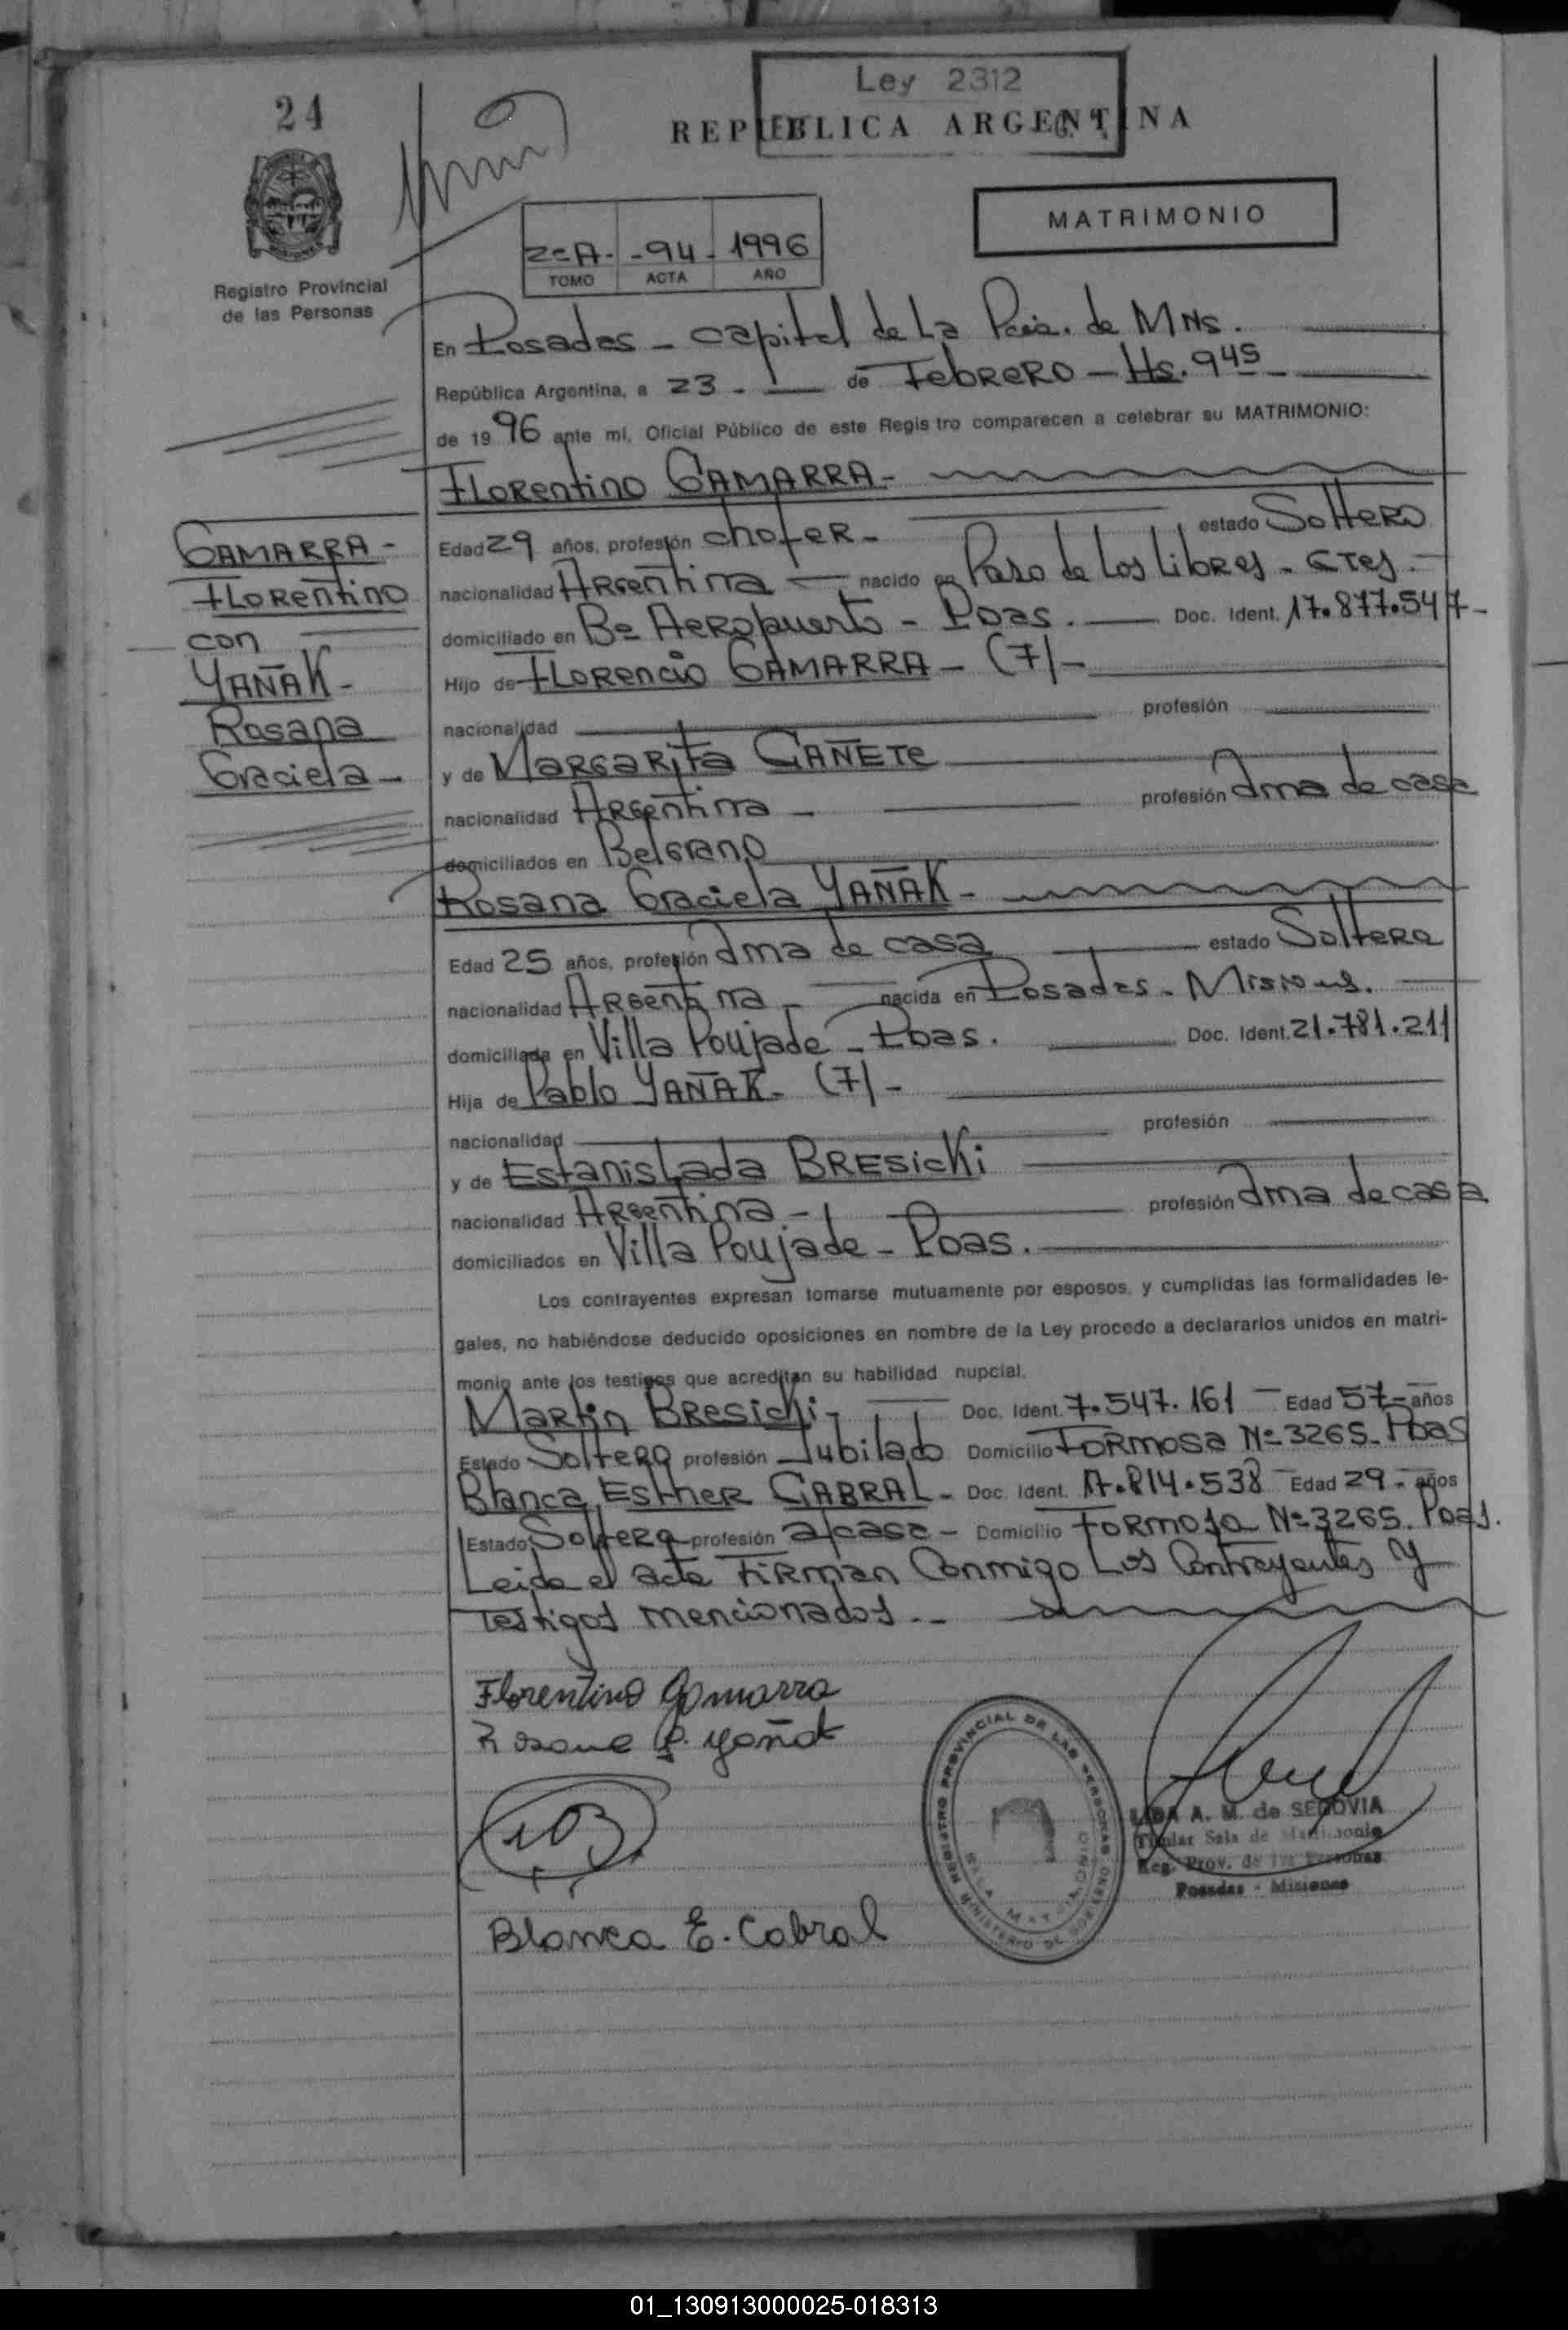 Ley 2312
24
REPUBLICA ARGENTINA
MATRIMONIO
2=A- -94- 1996
TOMO ACTA AÑO
Registro Provincial
de las Personas
En Posadas - capital de La Pcia. de MNS.
República Argentina, a 23 - de Febrero - Hs. 945
de 1996 ante mi, Oficial Público de este Registro comparecen a celebrar su MATRIMONIO:
Florentino GAMARRA-
GAMARRA-
Florentino
con
YAÑAK-
Rosana
Graciela-
Edad 29 años, profesión chofer- estado Soltero
nacionalidad Argentina - nacido en Paso de Los Libres - Ctes.
domiciliado en Bº Aeropuerto - Pdas. Doc. Ident. 17.877.547-
Hijo de Florencio GAMARRA - (7)-
nacionalidad profesión
y de Margarita CAÑETE
nacionalidad Argentina - profesión Ama de casa
domiciliados en Belgrano
Rosana Graciela YAÑAK-
Edad 25 años, profesión Ama de casa estado Soltera
nacionalidad Argentina - nacida en Posadas - Misiones.
domiciliada en Villa Poujade - Pdas. Doc. Ident. 21.781.211
Hija de Pablo YAÑAK- (7)-
nacionalidad profesión
y de Estanislada BRESICKi
nacionalidad Argentina - profesión Ama de casa
domiciliados en Villa Poujade - Pdas.
Los contrayentes expresan tomarse mutuamente por esposos, y cumplidas las formalidades le-
gales, no habiéndose deducido oposiciones en nombre de la Ley procedo a declararlos unidos en matri-
monio ante los testigos que acreditan su habilidad nupcial.
Martin BRESICKi- Doc. Ident. 7.547.161 - Edad 57- años
Estado Soltero profesión Jubilado Domicilio Formosa Nº 3265- Pdas
Blanca Esther CABRAL- Doc. Ident. 17.814.538 Edad 29- años
Estado Soltera profesión a/casa - Domicilio Formosa Nº 3265. Pdas.
Leida el acta firman Conmigo Los Contrayentes y
Testigos mencionados.-
Florentino Gamarra
Rosana G. Yañak
Blanca E. Cabral
REGISTRO PROVINCIAL DE LAS PERSONAS
SALA MATRIMONIO
MINISTERIO DE GOBIERNO
LIDA A. M. de SEGOVIA
Titular Sala de Matrimonio
Reg. Prov. de las Personas
Posadas - Misiones
01_130913000025-018313